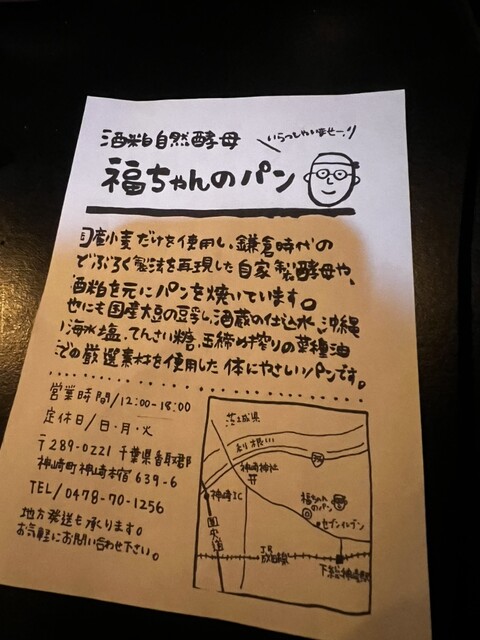 酒粕自然酵母
いらっしゃいませー!
福ちゃんのパン
国産小麦だけを使用し、鎌倉時代の
どぶろく製法を再現した自家製酵母や、
酒粕を元にパンを焼いています。
他にも国産大豆の豆乳、酒蔵の仕込水、沖縄
の海水塩、てんさい糖、玉締め搾りの菜種油
などの厳選素材を使用した体にやさしいパンです。
営業時間/12:00-18:00
定休日/日・月・火
〒289-0221 千葉県香取郡
神崎町神崎本宿639-6
TEL/0478-70-1256
地方発送も承ります。
お気軽にお問い合わせ下さい。
茨城県
利根川
神崎神社
神崎IC
福ちゃん
のパン
セブンイレブン
圏央道
JR
成田線
下総神崎駅